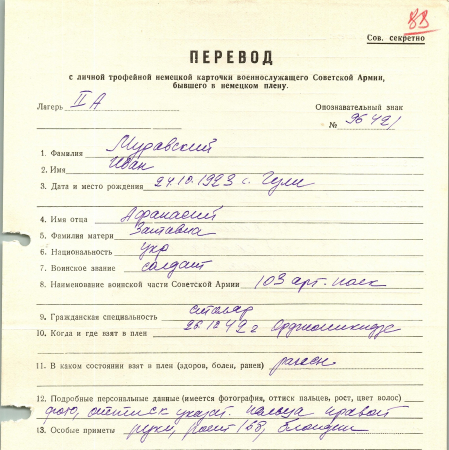 88
Сов. секретно
ПЕРЕВОД
с личной трофейной немецкой карточки военнослужащего Советской Армии,
бывшего в немецком плену.
Лагерь II А
Опознавательный знак
№ 96421
1. Фамилия Муравский
2. Имя Иван
3. Дата и место рождения 24.10.1923 с. Гули
4. Имя отца Афанасий
5. Фамилия матери
6. Национальность укр
7. Воинское звание солдат
8. Наименование воинской части Советской Армии 103 арт. полк
9. Гражданская специальность столяр
10. Когда и где взят в плен 26.12.42г Орджоникидзе
11. В каком состоянии взят в плен (здоров, болен, ранен) ранен
12. Подробные персональные данные (имеется фотография, оттиск пальцев, рост, цвет волос)
фото, оттиск указат. пальца правой
13. Особые приметы руки, рост 168, блондин